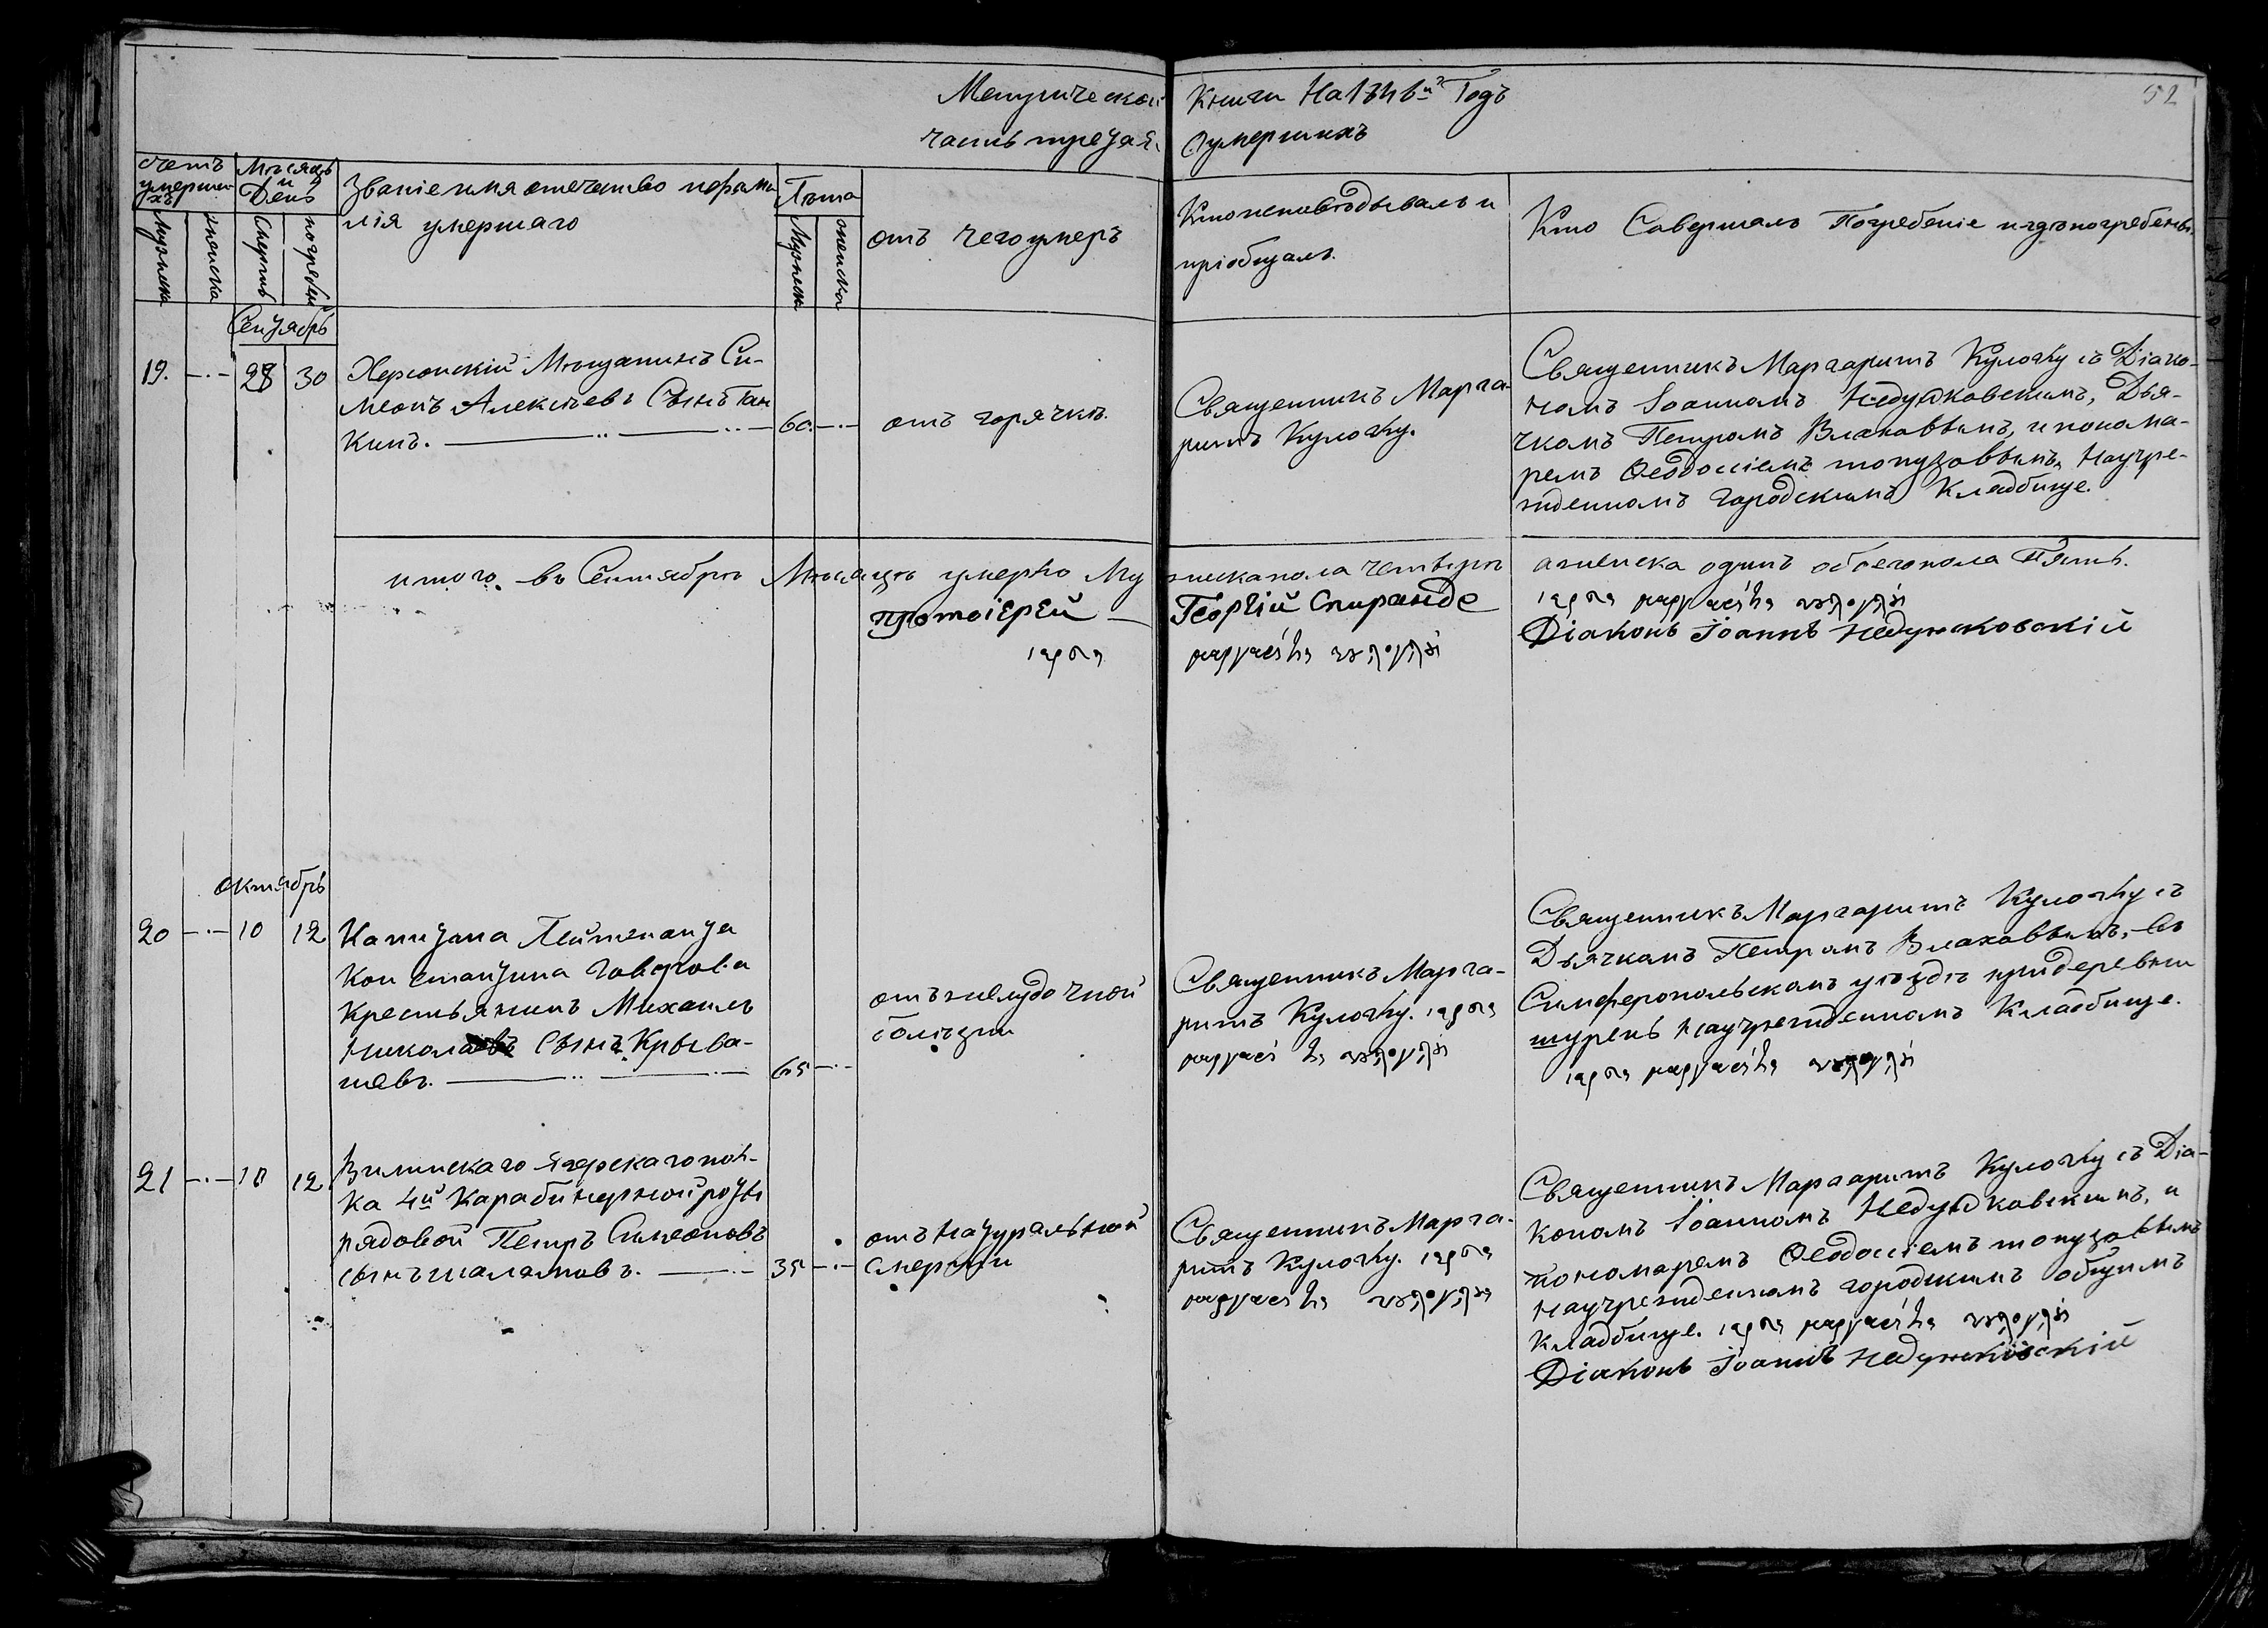 Метрической Книги На 1848й Годъ
52
часть третья. О умершихъ
счетъ умершихъ
Мужеска
женска
Мѣсяцъ и День
Смерти
погребен
Званіе имя отечество и фами
лія умершаго
Лѣта
Мужеск
женска
отъ чего умеръ
Кто исповѣдывалъ и
пріобщалъ.
Кто Совершалъ Погребеніе и гдѣ погребены.
Сентябрь
19. 28 30
Херсонскій Мѣщанинъ Си-
меонъ Алексѣевъ Сынъ Ган
кинъ. 60.
отъ горячки.
Священникъ Марга-
ритъ Кулочку.
Священникъ Маргаритъ Кулочку съ Діако-
номъ Іоанномъ Недужковскимъ, Дья-
чкомъ Петромъ Влаховымъ, и понома-
ремъ Ѳеодосіемъ топузовымъ, На учре-
жденномъ городскимъ Кладбище.
итого въ Сентябрѣ Мѣсяцѣ умерло Му жеска пола четыре а женска одинъ обоего пола Пять.
Протоіерей Георгій Спиранде
Діаконъ Іоаннъ Недужковскій
октябрь
20 10 12
Капитана Лейтенанта
Константина
Крестьянинъ Михаилъ
Сынъ Крыва-
шевъ. 65
отъ желудочной
болѣзни
Священникъ Марга-
ритъ Кулочку.
Священникъ Маргаритъ Кулочку съ
Дьячкомъ Петромъ Влаховымъ, въ
Симферопольскомъ уѣздѣ при деревни
на учрежденномъ Кладбище.
21 10 12.
Виленскаго Егерскаго пол-
ка 4й Карабинерной роты
рядовой Петръ Симеоновъ
сынъ шаламовъ. 35
отъ натуральной
смерти
Священникъ Марга-
ритъ Кулочку.
Священникъ Маргаритъ Кулочку съ Діа-
кономъ Іоанномъ Недужковскимъ, и
пономаремъ Ѳеодосіемъ топузовымъ
на учрежденномъ городскимъ общимъ
кладбище.
Діаконъ Іоаннъ Недужковскій